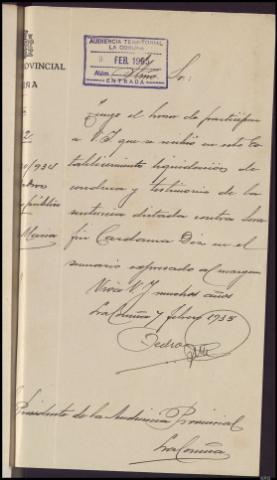 AUDIENCIA TERRITORIAL
LA CORUÑA
FEB. 1935
Núm.
ENTRADA
Ilmo. Sr:
PROVINCIAL
UÑA
Tengo el honor de participar
a V.I. que se recibió en este Es-
tablecimiento liquidación de
condena y testimonio de la
sentencia dictada contra Sera
fin Cardama Dios en el
sumario expresado al margen
Viva V.I. muchos años
La Coruña 7 febrero 1935
Pedro
/934
público
María
Presidente de la Audiencia Provincial
La Coruña